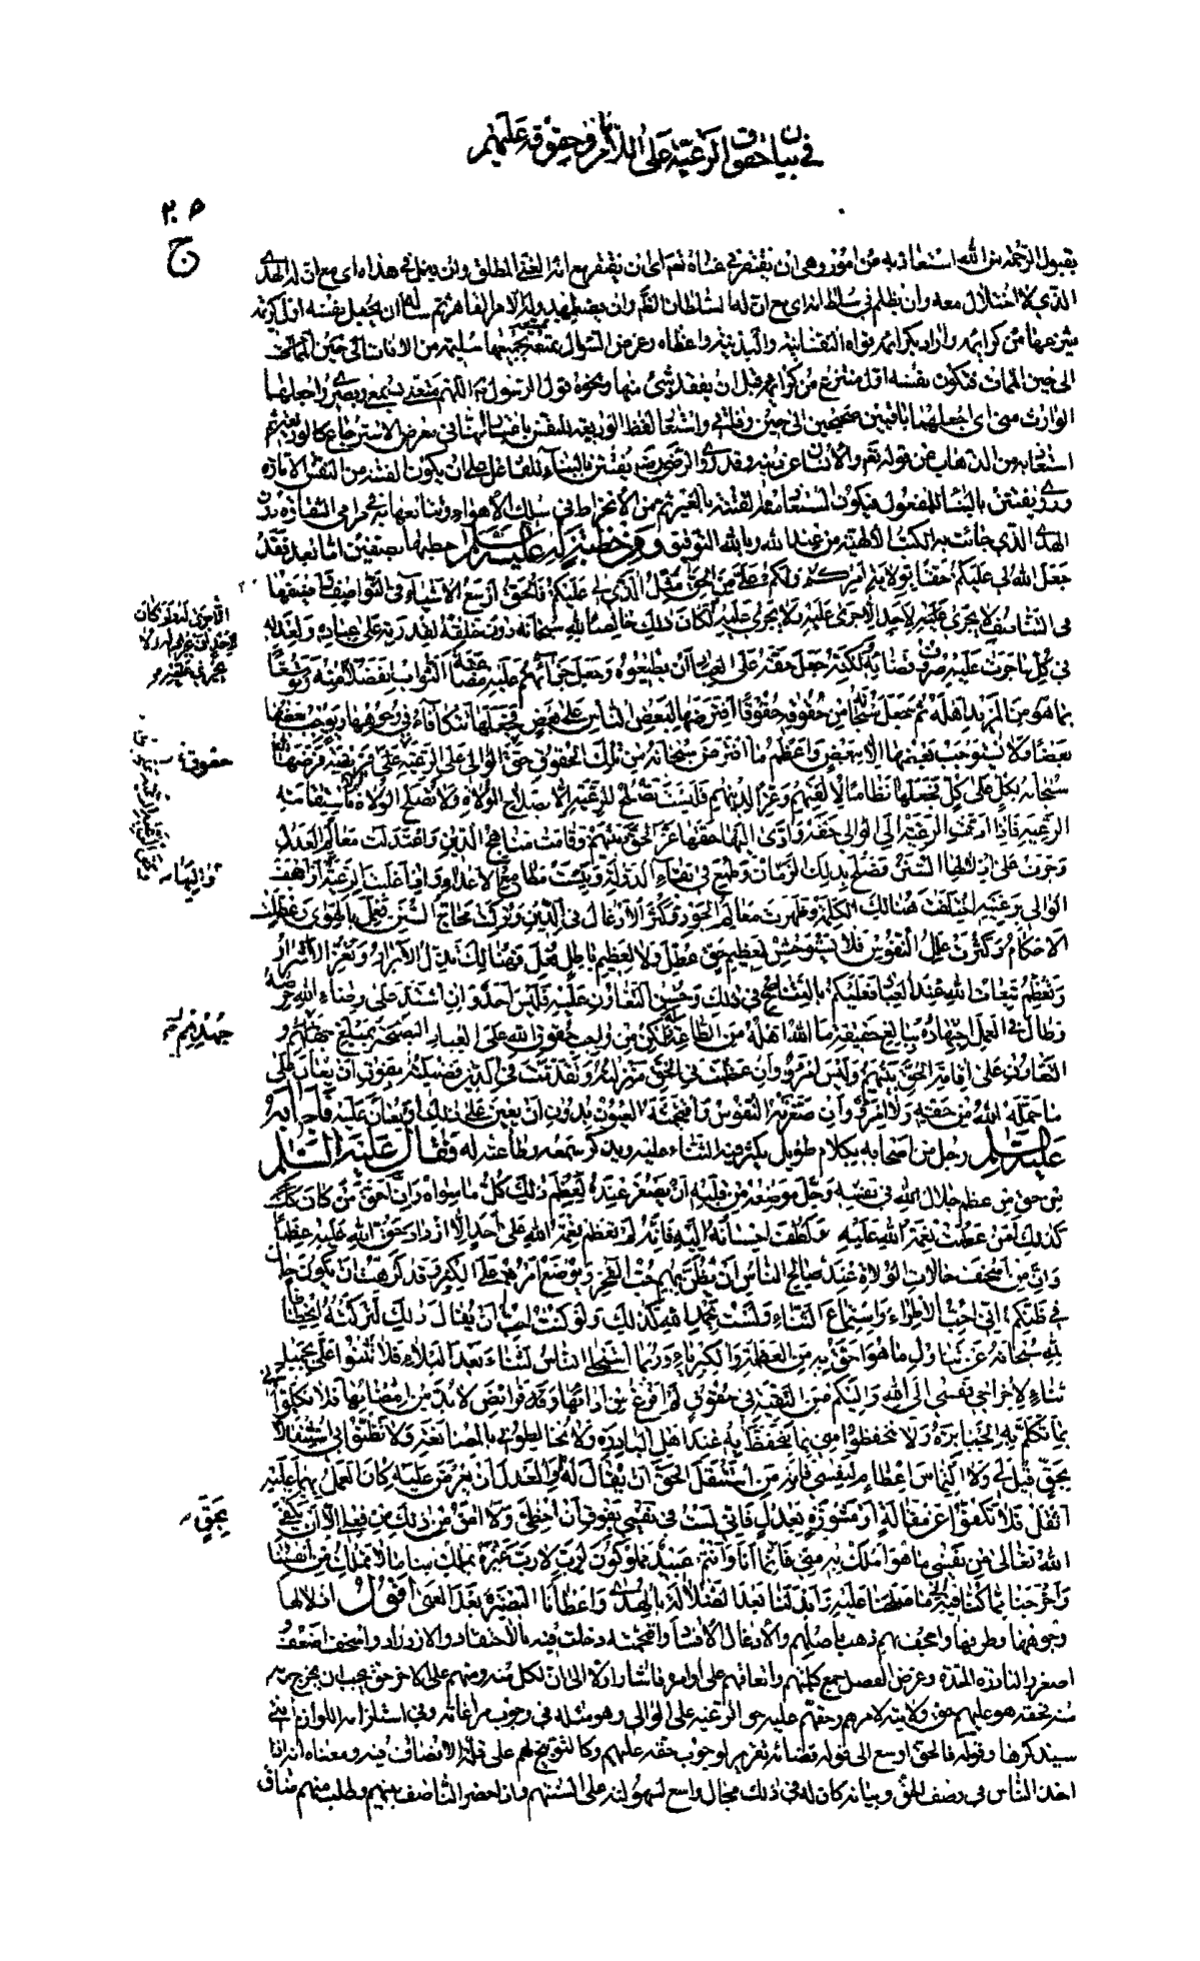 في بيان حقوق الرعية على الامام وحقوقه عليهم
٢٠٥
ج
بقبول الرحمة من الله استعاذ به من امور وهي ان يفتقر في غناه تعالى اى ان يفتقر مع انه الغني المطلق وان يضل في هداه اى مع ان له الهدى
الذي لا اختلال معه وان يظلم في سلطانه اى مع ان له السلطان القاهر وان يضطهد وله الامر القاهر ثم ساله ان يجعل نفسه اول كريمة
ينتزعها من كرائمه واراد بكرائمه قواه النفسانية والبدنية واعضاه وغرض السؤال تمتعه بجميعها سليمة من الافات الى حين الممات
الى حين الممات فتكون نفسه اول منتزع من كرائمه قبل ان يفقد شئ منها ونحوه قول الرسول اللهم متعني بسمعي وبصري واجعلهما
الوارث منى اى اجعلهما باقيين صحيحين الى حين وفاتي واستعار لفظ الوديعة للنفس باعتبار انها في معرض الاسترجاع كالوديعة ثم
استعاذ به من الذهاب عن قوله تعالى والافتتان عن دينه وقد روى الرضي يفتتن بالبناء للفاعل على ان يكون الفتنة من النفس الامارة
وروى يفتتن بالبناء للمفعول فيكون المستعاذ منه الفتنة بالغير ثم من الانخراط في سلك الاهواء وتتابعها به في مرامي الشقاوة دون
الهدى الذي جائت به الكتب الالهية من عند الله وبالله التوفيق ومن خطبة له عليه السلم خطبها بصفين اما بعد فقد
جعل الله لي عليكم حقا بولاية امركم ولكم علي من الحق مثل الذي لي عليكم فالحق اوسع الاشياء في التواصف واضيقها
في التناصف لا يجرى لاحد الا جرى عليه ولا يجرى عليه لكان ذلك خالصا لله سبحانه دون خلقه لقدرته على عباده ولعدله
في كل ما جرت عليه صروف قضائه ولكنه جعل حقه على العباد ان يطيعوه وجعل جزائهم عليه مضاعفة الثواب تفضلا منه وتوسعا
بما هو من المزيد اهله ثم جعل سبحانه من حقوقه حقوقا افترضها لبعض الناس على بعض فجعلها تتكافأ في وجوهها ويوجب بعضها
بعضا ولا يستوجب بعضها الا ببعض واعظم ما افترض سبحانه من تلك الحقوق حق الوالي على الرعية وحق الرعية على الوالي فريضة فرضها الله
سبحانه لكل على كل فجعلها نظاما لالفتهم وعزا لدينهم فليست تصلح الرعية الا بصلاح الولاة ولا تصلح الولاة الا باستقامة
الرعية فاذا ادت الرعية الى الوالي حقه وادى اليها حقها عز الحق بينهم وقامت مناهج الدين واعتدلت معالم العدل
وجرت على اذلالها السنن فصلح بذلك الزمان وطمع في بقاء الدولة ويئست مطامع الاعداء واذا غلبت الرعية واليها او اجحف
الوالي برعيته اختلفت هنالك الكلمة وظهرت معالم الجور وكثر الادغال في الدين وتركت محاج السنن فعمل بالهوى وعطلت
الاحكام وكثرت علل النفوس فلا يستوحش لعظيم حق عطل ولا لعظيم باطل فعل فهنالك تذل الابرار وتعز الاشرار
وتعظم تبعات الله عند العباد فعليكم بالتناصح في ذلك وحسن التعاون عليه فليس احد وان اشتد على رضاء الله حرصه
وطال في العمل اجتهاده ببالغ حقيقة ما الله اهله من الطاعة ولكن من واجب حقوق الله على العباد النصيحة بمبلغ جهدهم و
التعاون على اقامة الحق بينهم وليس امرؤ وان عظمت في الحق منزلته وتقدمت في الدين فضيلته بفوق ان يعان على
ما حمله الله من حقه ولا امرؤ وان صغرته النفوس واقتحمته العيون بدون ان يعين على ذلك او يعان عليه فاجابه
عليه السلم رجل من اصحابه بكلام طويل يكثر فيه الثناء عليه ويذكر سمعه وطاعته له فقال عليه السلم
من حق من عظم جلال الله في نفسه وجل موضعه من قلبه ان يصغر عنده لعظم ذلك كل ما سواه وان احق من كان
كذلك لمن عظمت نعمة الله عليه ولطف احسانه اليه فانه لم تعظم نعمة الله على احد الا ازداد حق الله عليه عظما
وان من اسخف حالات الولاة عند صالح الناس ان يظن بهم حب الفخر ويوضع امرهم على الكبر وقد كرهت ان يكون جال
في ظنكم اني احب الاطراء واستماع الثناء ولست بحمد الله كذلك ولو كنت احب ان يقال ذلك لتركته انحطاطا
لله سبحانه عن تناول ما هو احق به من العظمة والكبرياء وربما استحلى الناس الثناء بعد البلاء فلا تثنوا علي بجميل
ثناء لاخراجي نفسي الى الله واليكم من التقية في حقوق لم افرغ من ادائها وفرائض لا بد من امضائها فلا تكلموني
بما تكلم به الجبابرة ولا تتحفظوا مني بما يتحفظ به عند اهل البادرة ولا تخالطوني بالمصانعة ولا تظنوا بي استثقالا
بحق قيل لي ولا التماس اعظام لنفسي فانه من استثقل الحق ان يقال له او العدل ان يعرض عليه كان العمل بهما عليه
اثقل فلا تكفوا عن مقالة او مشورة بعدل فاني لست في نفسي بفوق ان اخطئ ولا امن من ذلك من فعلي الا ان يكفي
الله تعالى من نفسي ما هو املك به مني فانما انا وانتم عبيد مملوكون لرب لا رب غيره يملك منا ما لا نملك من انفسنا
واخرجنا مما كنا فيه الى ما صلحنا عليه وابدلنا بعد الضلالة بالهدى واعطانا البصيرة بعد العمى اقول اذلالها
وجوهها وطرقها واجحف بهم ذهب باصلهم والادغال الافساد واقتحمته دخلت فيه بالاحتقار والازدراء واسخف اضعف
اصغر والبادرة الحدة وغرض الفصل جمع كلمتهم واتفاقهم على اوامره فاشار اولا الى ان لكل منه ومنهم على الاخر حق يجب ان يخرج
منه فحقه هو عليهم حق ولايته لامرهم وحقهم عليه حق الرعية على الوالي وهو مثله في وجوب مراعاته وفي استلزامه اللوازم التي
سيذكرها وقوله فالحق اوسع الى قوله قضائه تقرير لوجوب حقه عليهم وكالتوبيخ لهم على قلة الانصاف فيه ومعناه انه اذا
اخذ الناس في وصف الحق وبيانه كان له في ذلك مجال واسع لسهولته على السنتهم واذا حضر التناصف بينهم وطلب منهم ضاق
حقوقه
واليها
جهدهم
بحق